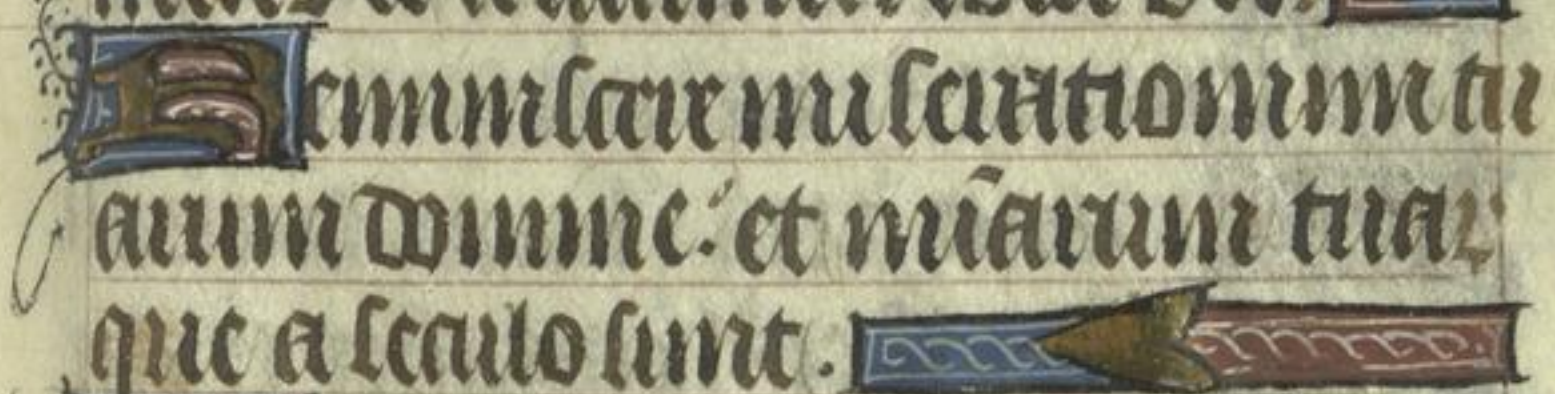 Reminiscere miserationum tu
arum domine: et mīarum tuaꝝ
que a seculo sunt.